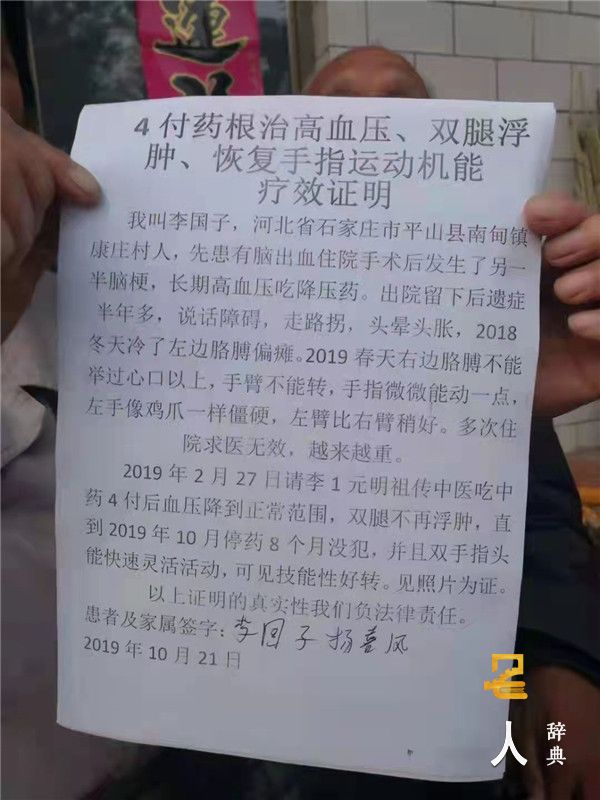 4付药根治高血压、双腿浮
肿、恢复手指运动机能
疗效证明
我叫李国子，河北省石家庄市平山县南甸镇
康庄村人，先患有脑出血住院手术后发生了另一
半脑梗，长期高血压吃降压药。出院留下后遗症
半年多，说话障碍，走路拐，头晕头胀，2018
冬天冷了左边胳膊偏瘫。2019春天右边胳膊不能
举过心口以上，手臂不能转，手指微微能动一点，
左手像鸡爪一样僵硬，左臂比右臂稍好。多次住
院求医无效，越来越重。
2019年2月27日请李1元明祖传中医吃中
药4付后血压降到正常范围，双腿不再浮肿，直
到2019年10月停药8个月没犯，并且双手指头
能快速灵活活动，可见技能性好转。见照片为证。
以上证明的真实性我们负法律责任。
患者及家属签字：李国子 杨喜凤
2019年10月21日
人
辞典